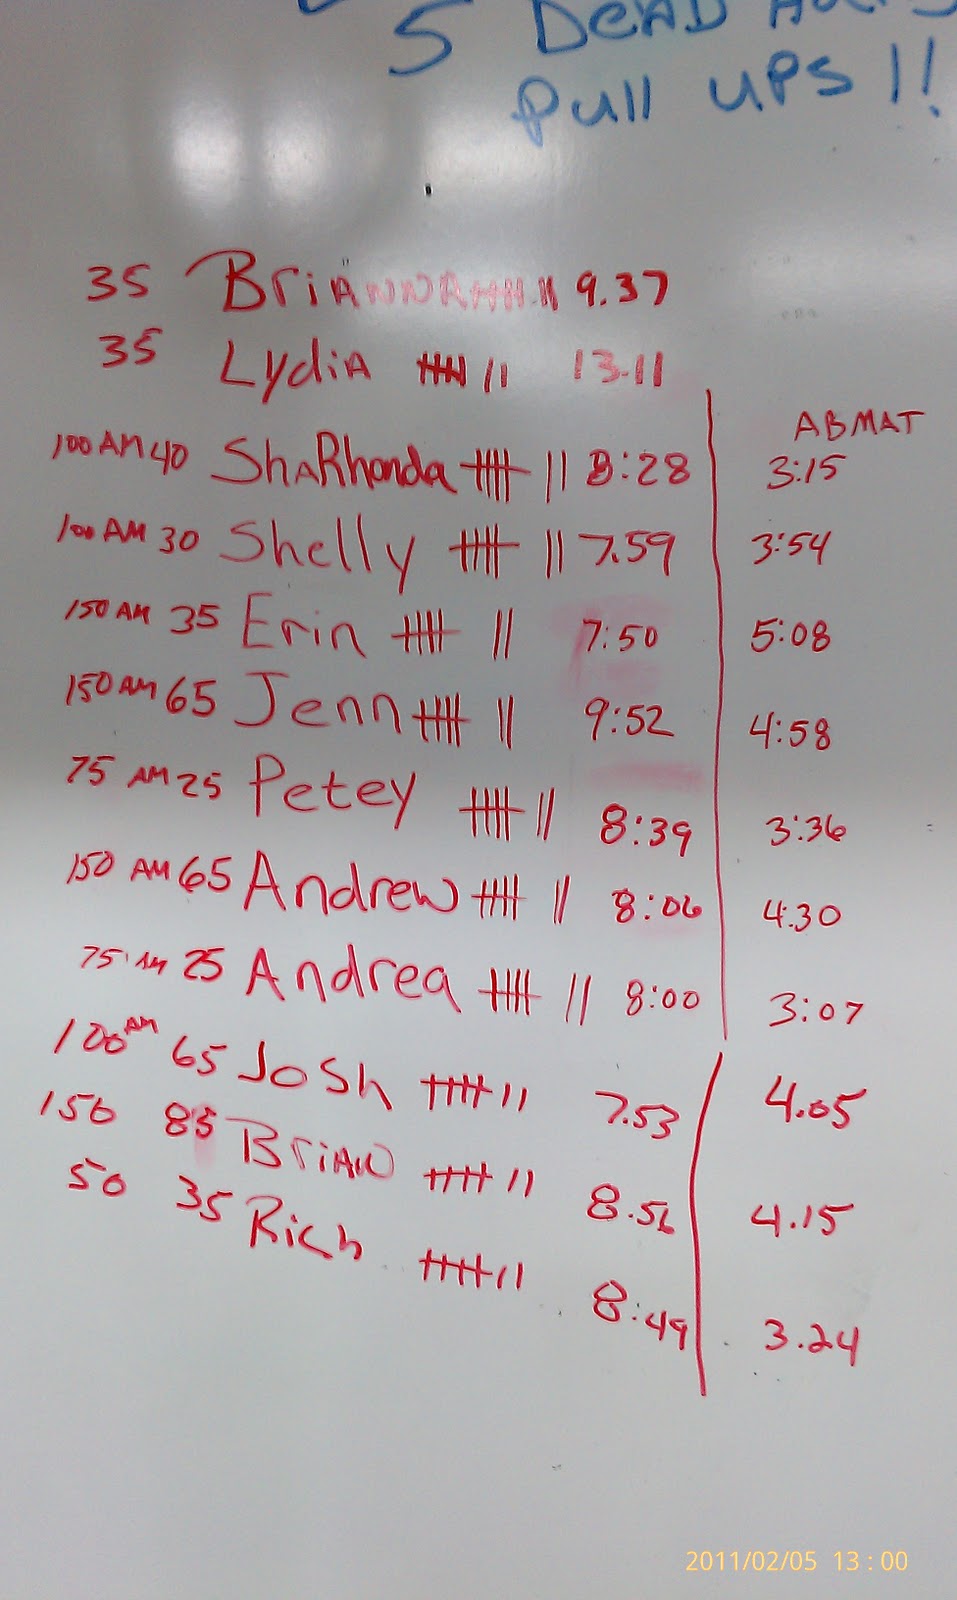 5 DEAD
Pull UPS !!
35 BriANNAHHH II 9.37
35 LydiA HHH II 13.11
ABMAT
100 AM 40 ShaRhonda HHH II 8:28 3:15
100 AM 30 Shelly HHH II 7.59 3:54
150 AM 35 Erin HHH II 7:50 5:08
150 AM 65 Jenn HHH II 9:52 4:58
75 AM 25 Petey HHH II 8:39 3:36
150 AM 65 Andrew HHH II 8:06 4:30
75 AM 25 Andrea HHH II 8:00 3:07
100 AM 65 Josh HHH II 7.53 4.05
150 85 BriAN HHH II 8.56 4.15
50 35 Rich HHH II 8:49 3.24
2011/02/05 13:00